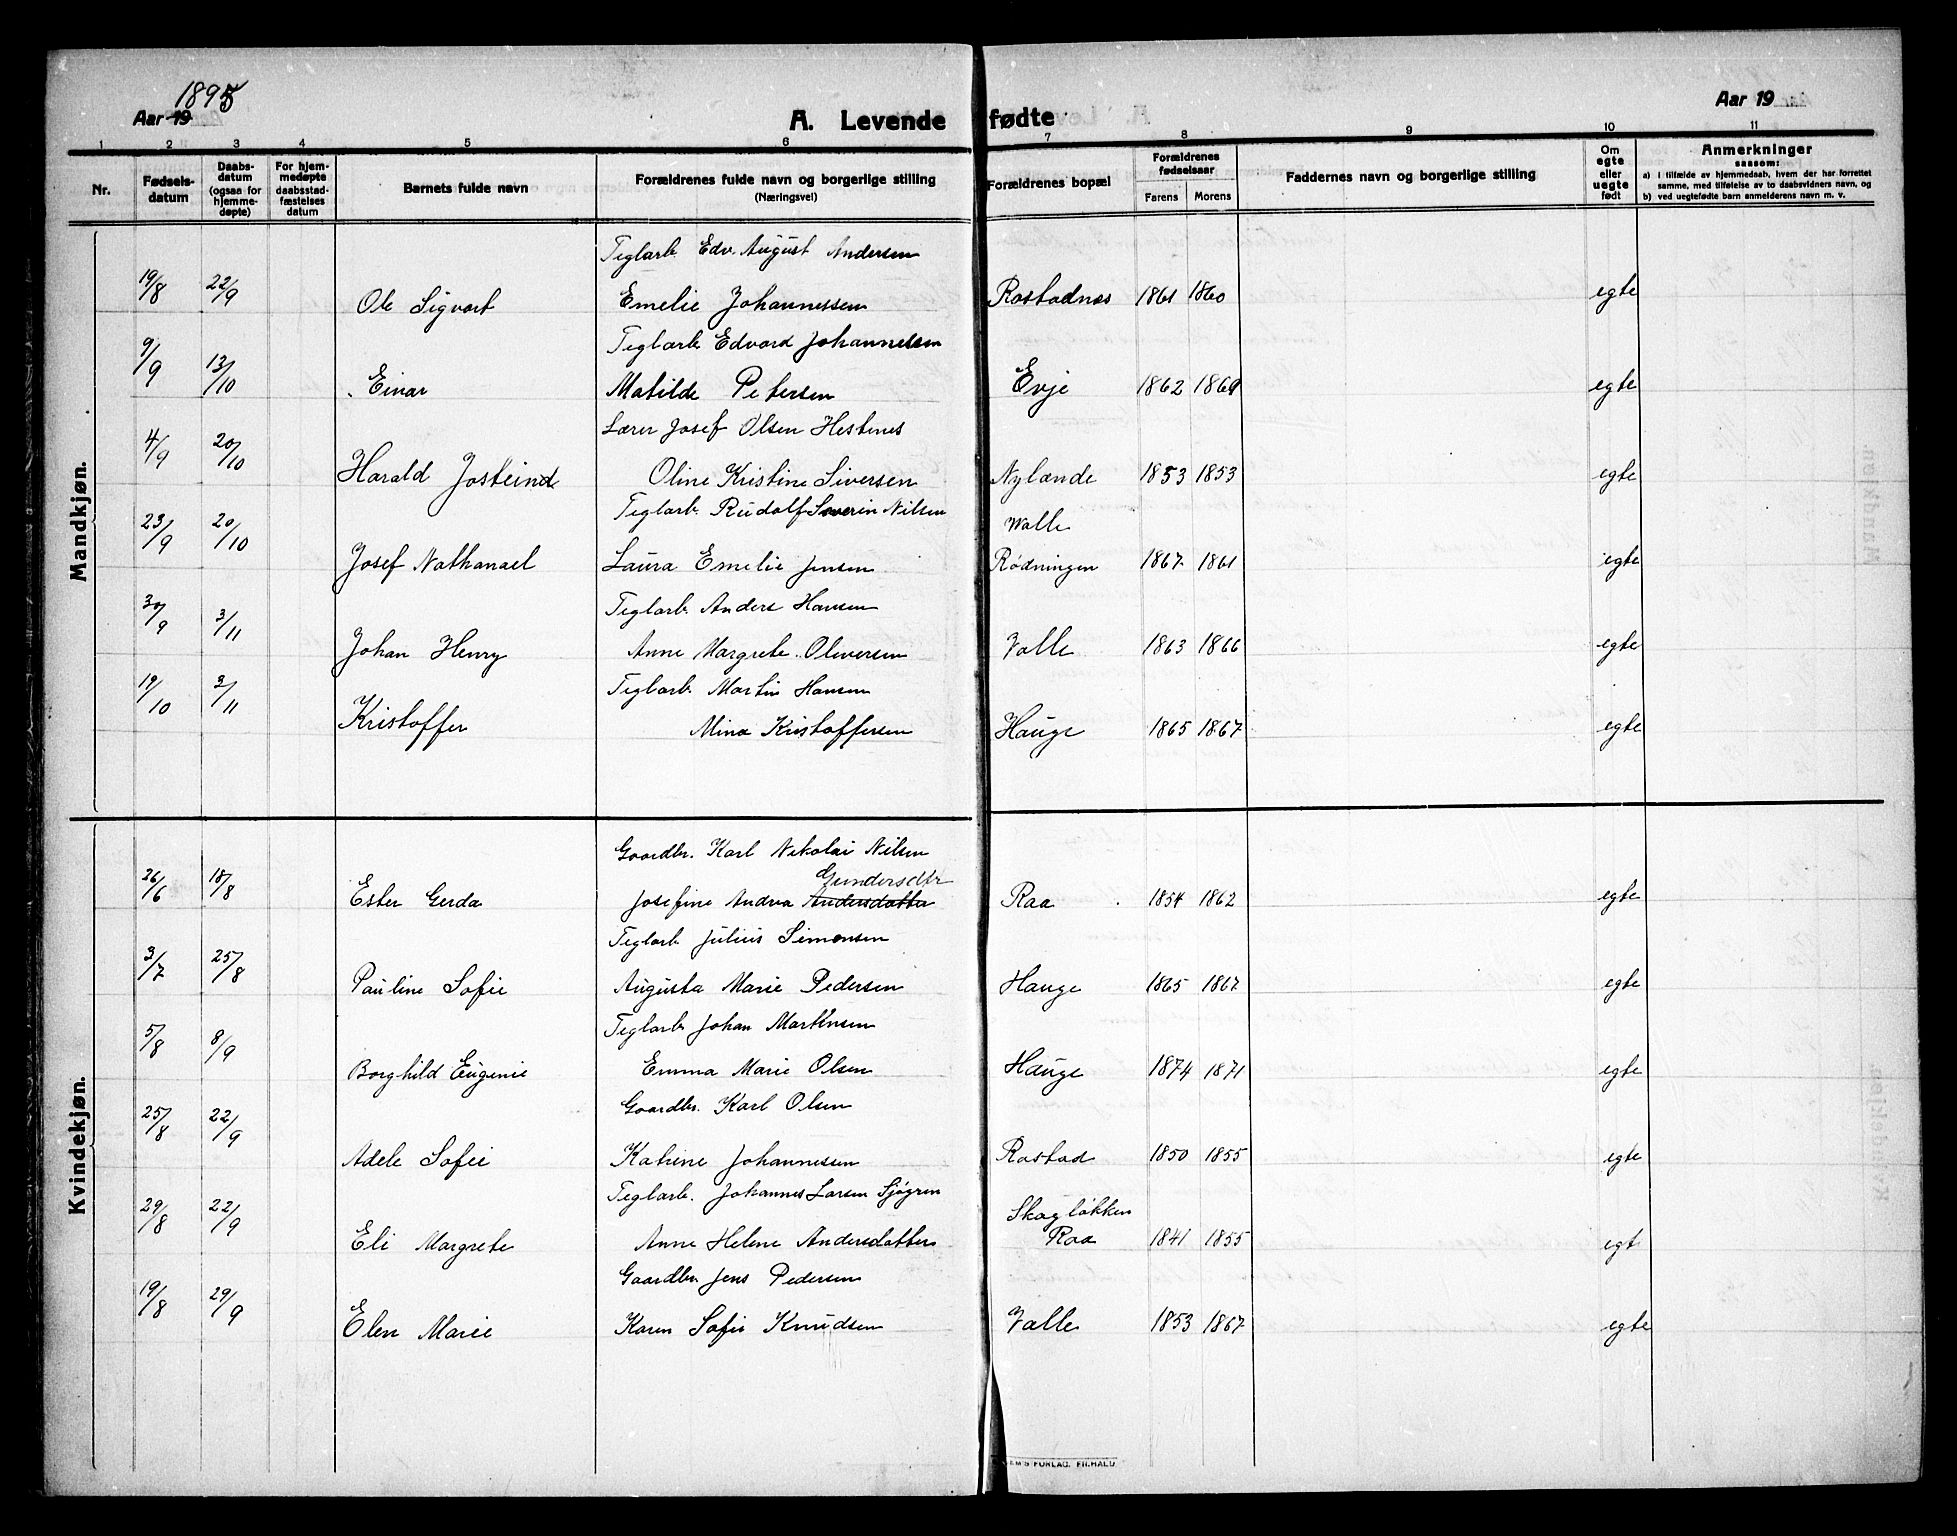 1895
Aar 19
A. Levende fødte
Aar 19
1 2 3 4 5 6 7 8 9 10 11
Nr.
Fødsels-datum
Daabs-datum (ogsaa for hjemme-døpte)
For hjem-medøpte daabsstad-fæstelses datum
Barnets fulde navn
Forældrenes fulde navn og borgerlige stilling (Næringsvei)
Forældrenes bopæl
Forældrenes fødselsaar
Farens Morens
Faddernes navn og borgerlige stilling
Om egte eller uegte født
Anmerkninger
saasom:
a) i tilfælde av hjemmedaab, hvem der har forrettet samme, med tilføielse av to daabsvidners navn, og
b) ved uegtefødte barn anmelderens navn m. v.
Mandkjøn.
Teglarb. Edv. August Andersen
19/8 22/9 Ole Sigvart Emelie Johannessen Rostadnes 1861 1860 egte
Teglarb. Edvard Johannessen
9/9 13/10 Einar Matilde Petersen Evje 1862 1869 egte
Lærer Josef Olsen Hestenes
4/9 20/10 Harald Josteind Oline Kristine Siversen Nylænde 1853 1853 egte
Teglarb. Rudolf Severin Nilsen Walle
23/9 20/10 Josef Nathanael Laura Emelie Jensen Rødningen 1867 1861 egte
Teglarb. Anders Hansen
30/9 3/11 Johan Henry Anne Margrete Oliversen Valle 1863 1866 egte
Teglarb. Martin Hansen
19/10 3/11 Kristoffer Mina Kristoffersen Hauge 1865 1867 egte
Kvindekjøn.
Gaardbr. Karl Nikolai Nilsen
Gundersdtr
26/6 18/8 Ester Gerda Josefine Andrea Andersdatter Raa 1854 1862 egte
Teglarb. Julius Simonsen
3/7 25/8 Pauline Sofie Augusta Marie Pedersen Hauge 1865 1867 egte
Teglarb. Johan Martinsen
5/8 8/9 Borghild Eugenie Emma Marie Olsen Hauge 1874 1871 egte
Gaardbr. Karl Olsen
25/8 22/9 Adele Sofie Katrine Johannessen Rostad 1850 1855 egte
Teglarb. Johannes Larsen Sjøgren Skogløkken
29/8 22/9 Eli Margrete Anne Helene Andersdatter Raa 1841 1855 egt
Gaardbr. Jens Pedersen
19/8 29/9 Elen Marie Karen Sofie Knudsen Valle 1853 1867 egte
EM'S FORLAG, FR.HALD